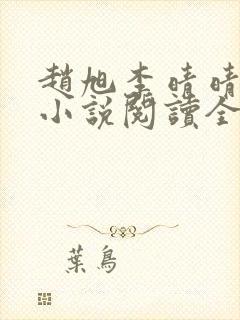 趙旭李晴晴
小說閱讀全
葉鳥